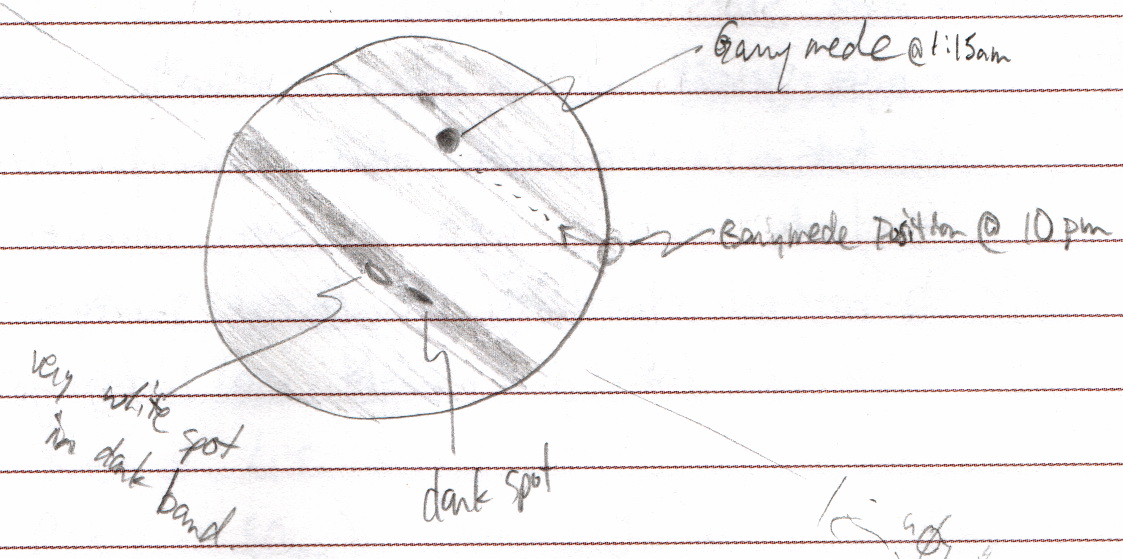 Ganymede @ 1:15am
Ganymede position @ 10 pm
very white spot
in dark band.
dark spot